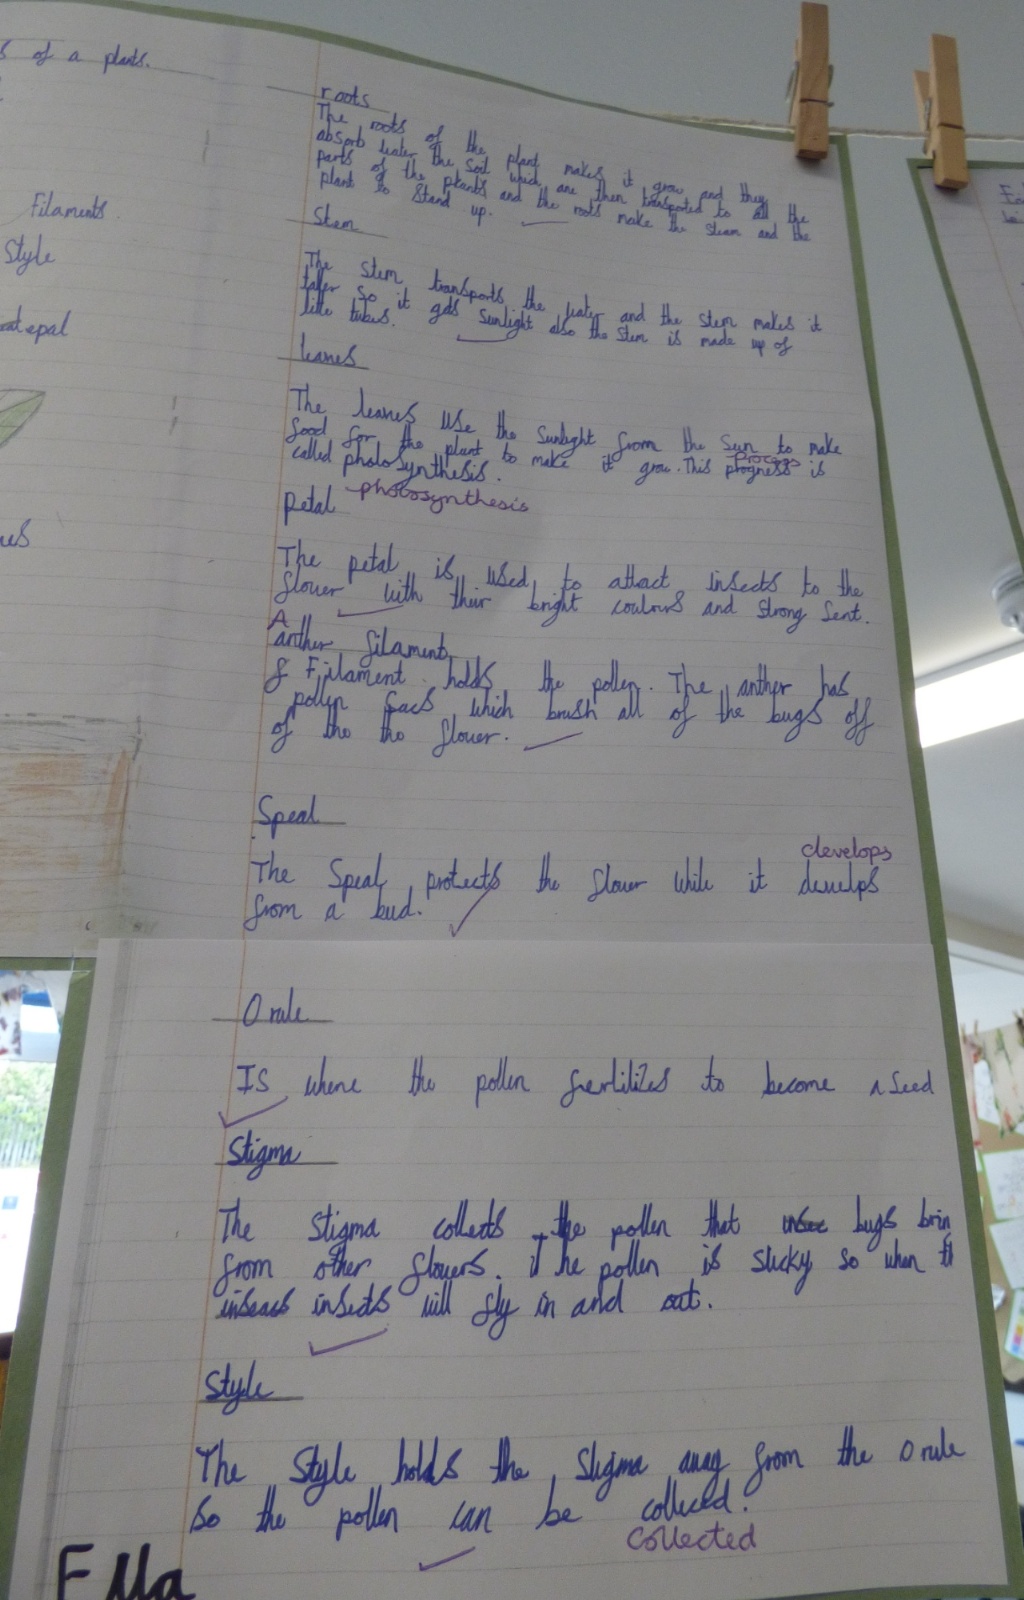 of a plants.
Filaments
Style
roots
The roots of the plant makes it grow and they
absorb water the soil which are then transpoted to all the
parts of the plants and the roots make the steam and the
plant to Stand up.
Stem
The stem transports the water and the stem makes it
taller so it gets sunlight also the stem is made up of
little tubes.
leaves
The leaves use the sunlight from the sun to make
process
food for the plant to make it grow. This progness is
called photosynthesis.
photosynthesis
Petal
The petal is used to attract insects to the
flower with their bright coulours and strong sent.
A
anther filament
Filament holds the pollen. The anther has
pollen sacs which brush all of the bugs off
of the the flower.
Speal
develops
The Speal protects the flower while it
from a bud.
O vule
Is where the pollen fertilizes to become a seed
Stigma
The stigma collects the pollen that insec bugs brin
from other flowers. the pollen is sticky so when th
insects will fly in and out.
Style
The Style holds the Stigma away from the O vule
so the pollen can be colleced.
collected
Ella